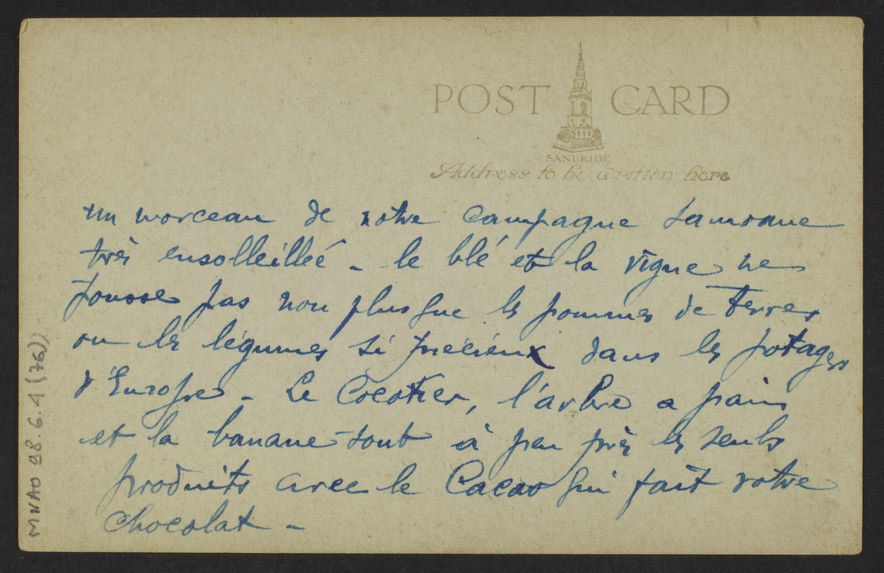 POST CARD
SANBRIDE
Address to be written here
un morceau de notre campagne samoane
très ensolleillée - le blé et la vigne ne
pousse pas non plus que les pommes de terres
ou les légumes si précieux dans les potages
d'Europe - Le Cocotier, l'arbre a pain
et la banane sont à peu près les seuls
produits avec le Cacao qui fait votre
chocolat -
MNAO 98.6.1 (76)